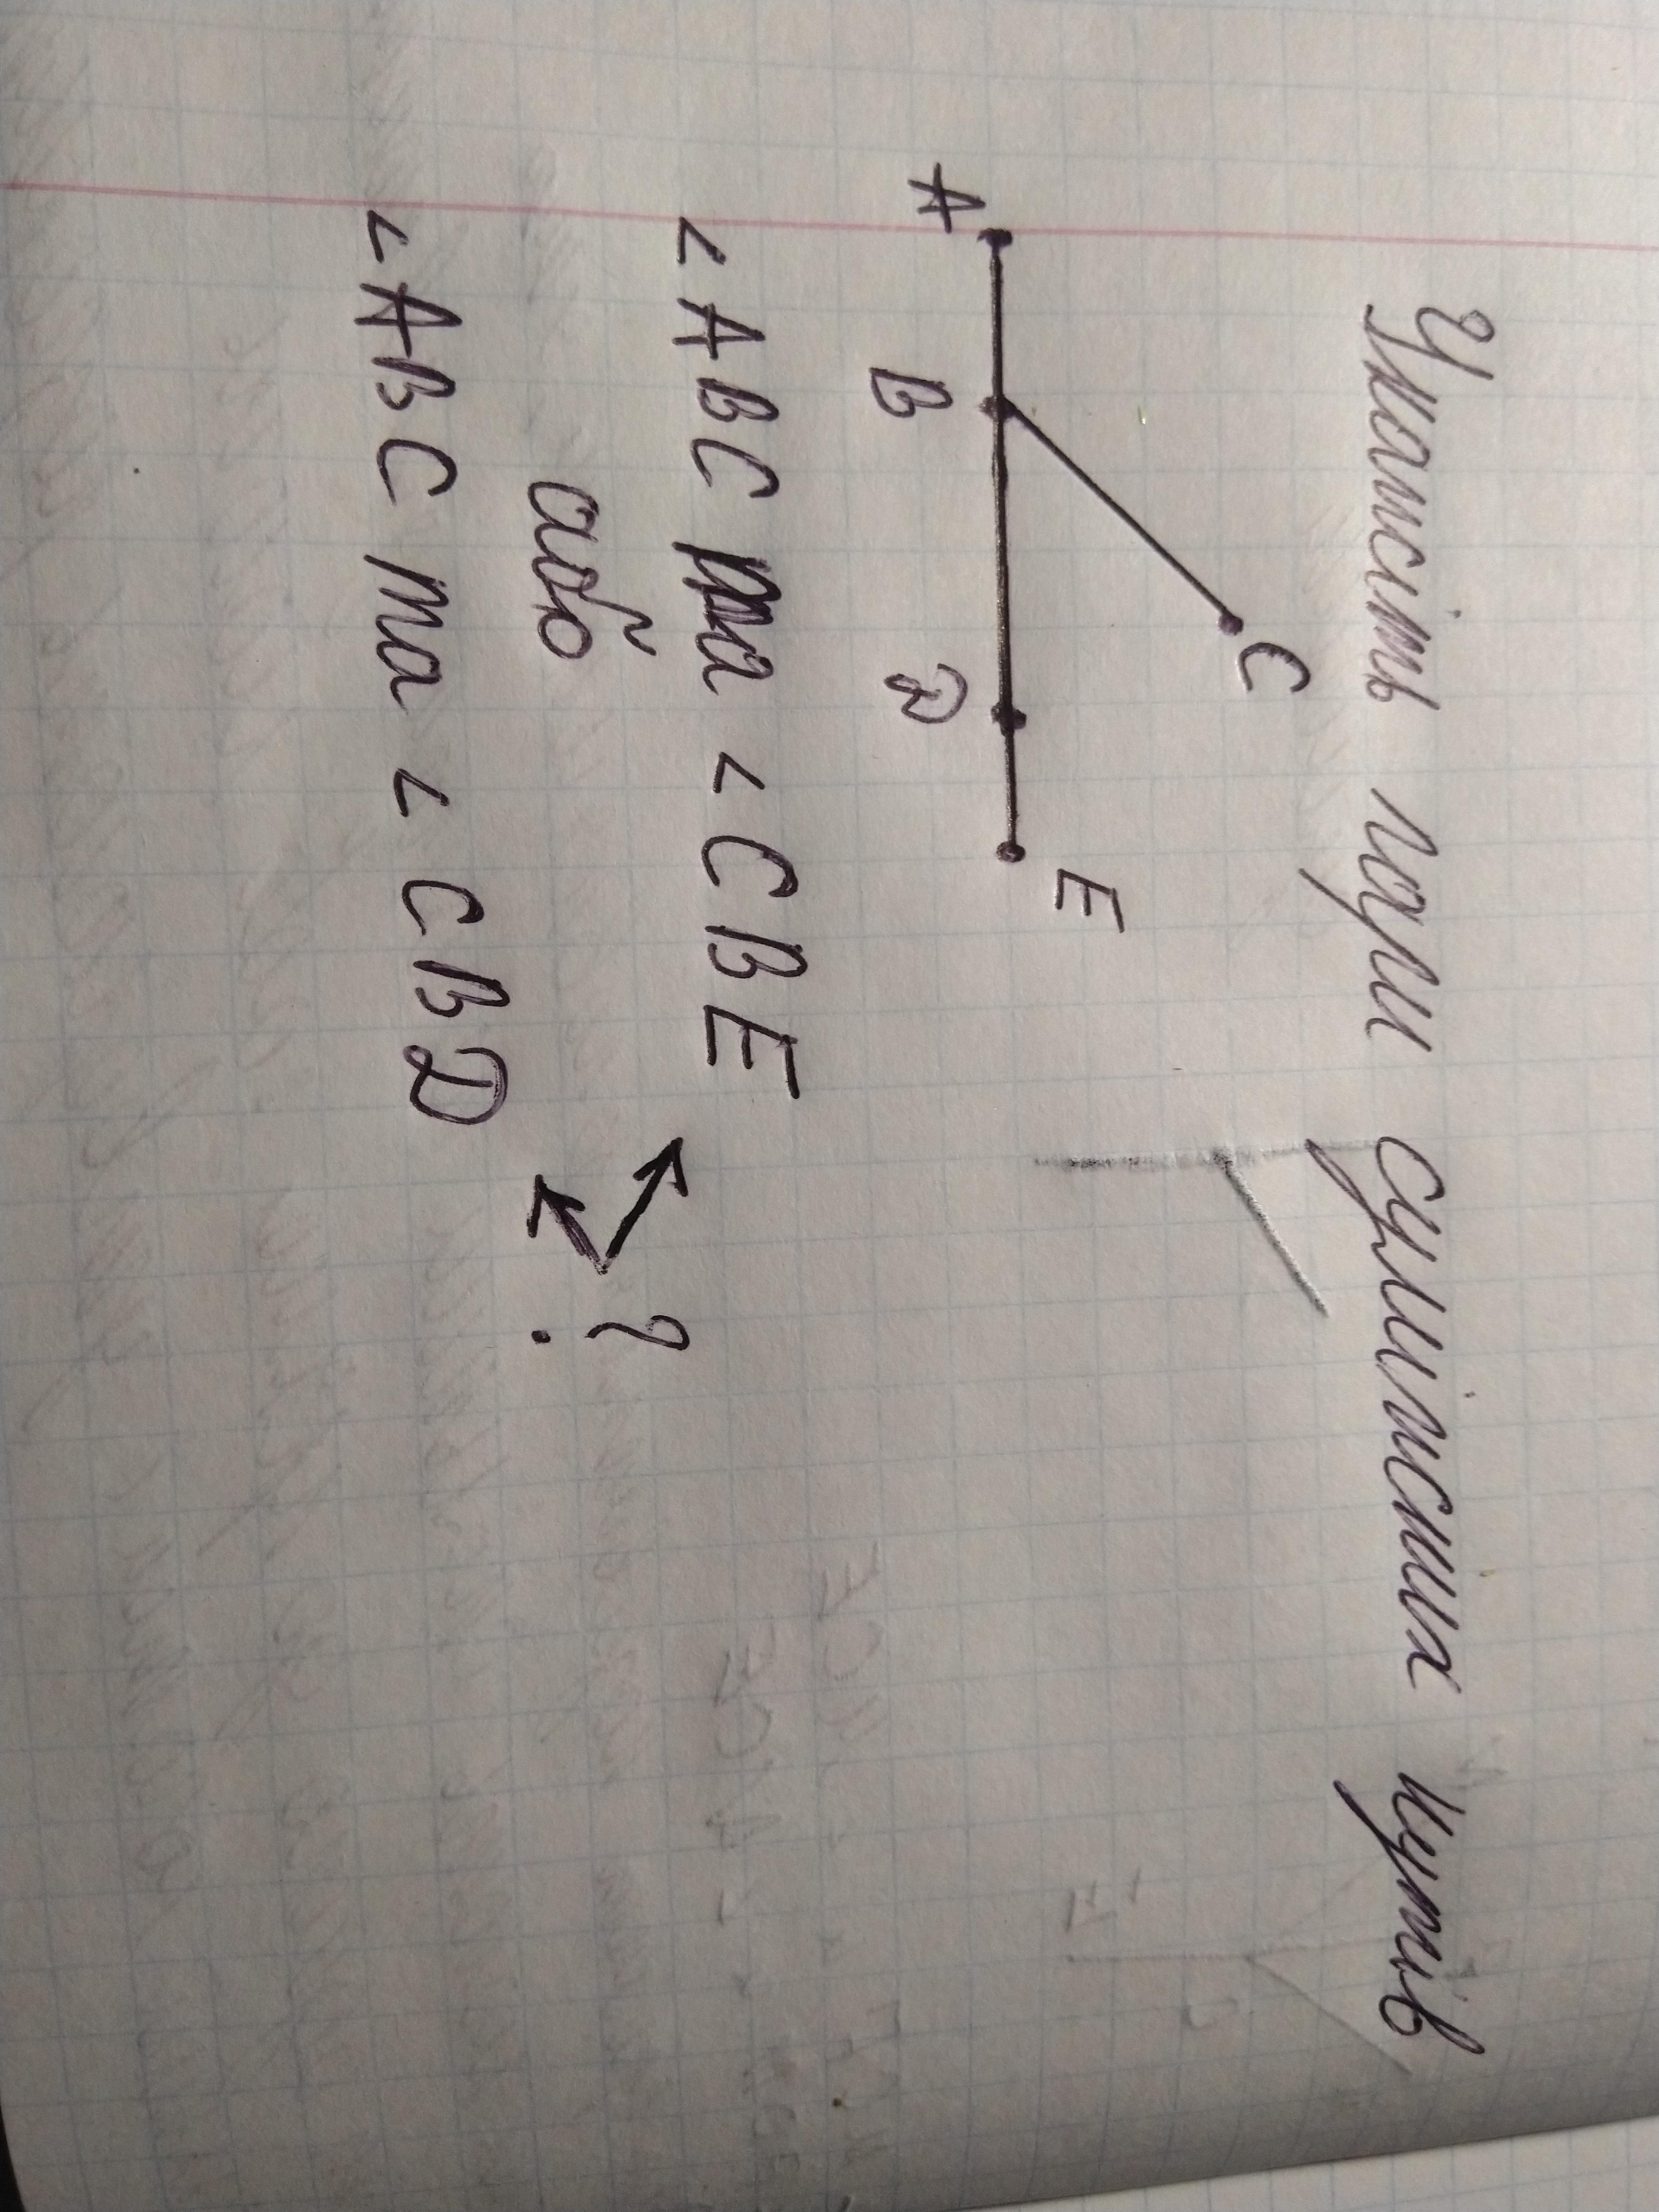 Укажіть пари суміжних кутів
C
A B D E
∠ABC та ∠CBE
або
∠ABC та ∠CBD
?